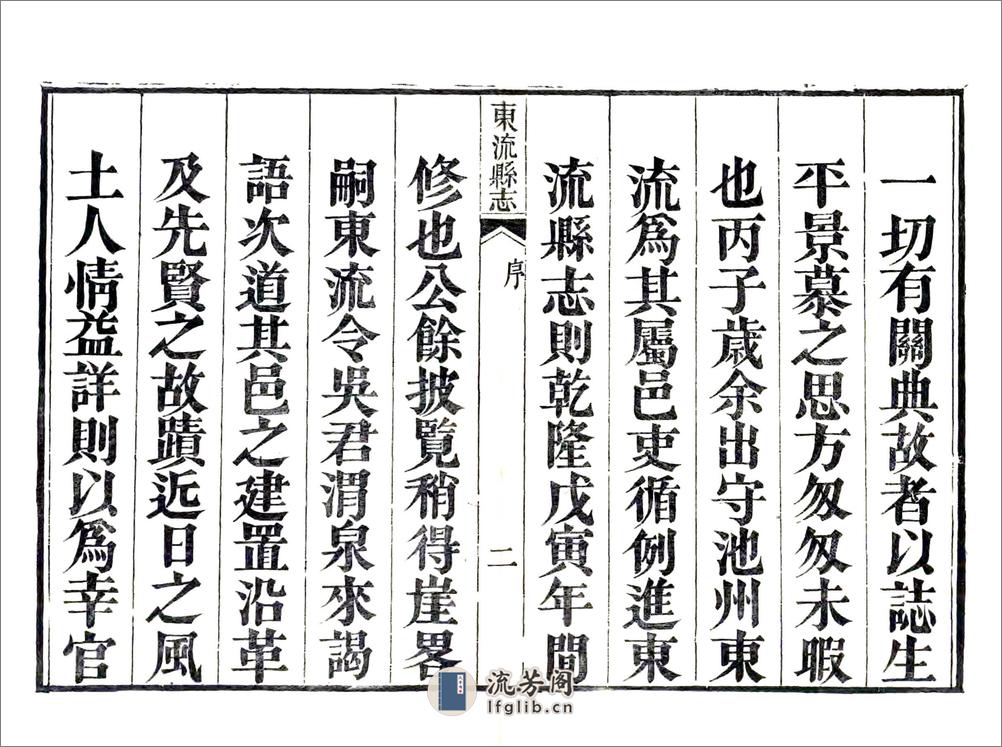 一切有關典故者以誌生
平景慕之思方匆匆未暇
也丙子歲余出守池州東
流爲其屬邑吏循例進東
流縣志則乾隆戊寅年間
東流縣志
序
二
修也公餘披覽稍得崖畧
嗣東流令吳君渭泉來謁
語次道其邑之建置沿革
及先賢之故蹟近日之風
土人情益詳則以爲幸官
流芳阁
lfglib.cn